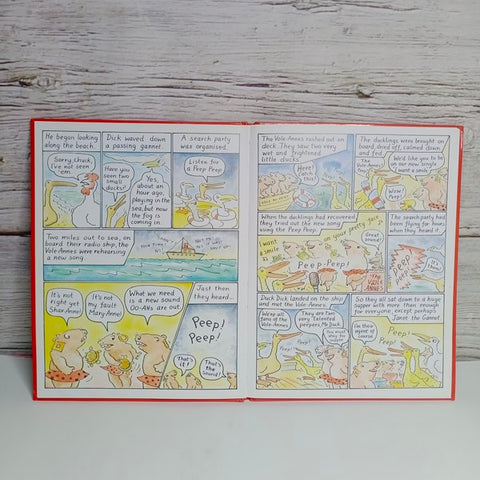 He began looking
along the beach.
Sorry, Chuck,
I've not seen
'em.
Dick waved down
a passing gannet.
Have you
seen two
small
ducks?
Yes,
about an
hour ago,
playing in the
sea, but now
the fog is
coming in.
A search party
was organised.
Listen for
a Peep Peep.
Two miles out to sea, on
board their radio ship, the
Vole-Annes were rehearsing
a new song.
It's not
right yet
Shar-Anne!
It's not
my fault
Mary-Anne!
What we
need is
a new sound
Oo-Ahs are out.
Just then
they heard...
Peep!
Peep!
That's
it!
That's the
sound!
The Vole-Annes rushed out on
deck. They saw two very
wet and frightened
little ducks.
The ducklings were brought on
board, dried off, calmed down
and fed.
The
Vole-Annes!
We'd like you to be
on our new single
I want a smile.
Wow!
Peep!
When the ducklings had recovered,
they tried out the new song
using the Peep Peep.
I want
a smile
on your pretty face
Peep-Peep!
Great
sound!
The search party had
been flying for hours
when they heard it.
It's
them!
Duck Dick landed on the ship
and met the Vole-Annes.
We're all
fans of the
Vole-Annes.
They are two
very talented
peepers, Mr Duck.
So they all sat down to a huge
supper with more than enough
for everyone, except perhaps
Janet the Gannet.
I'm their
agent of
course.
Peep!
Peep!